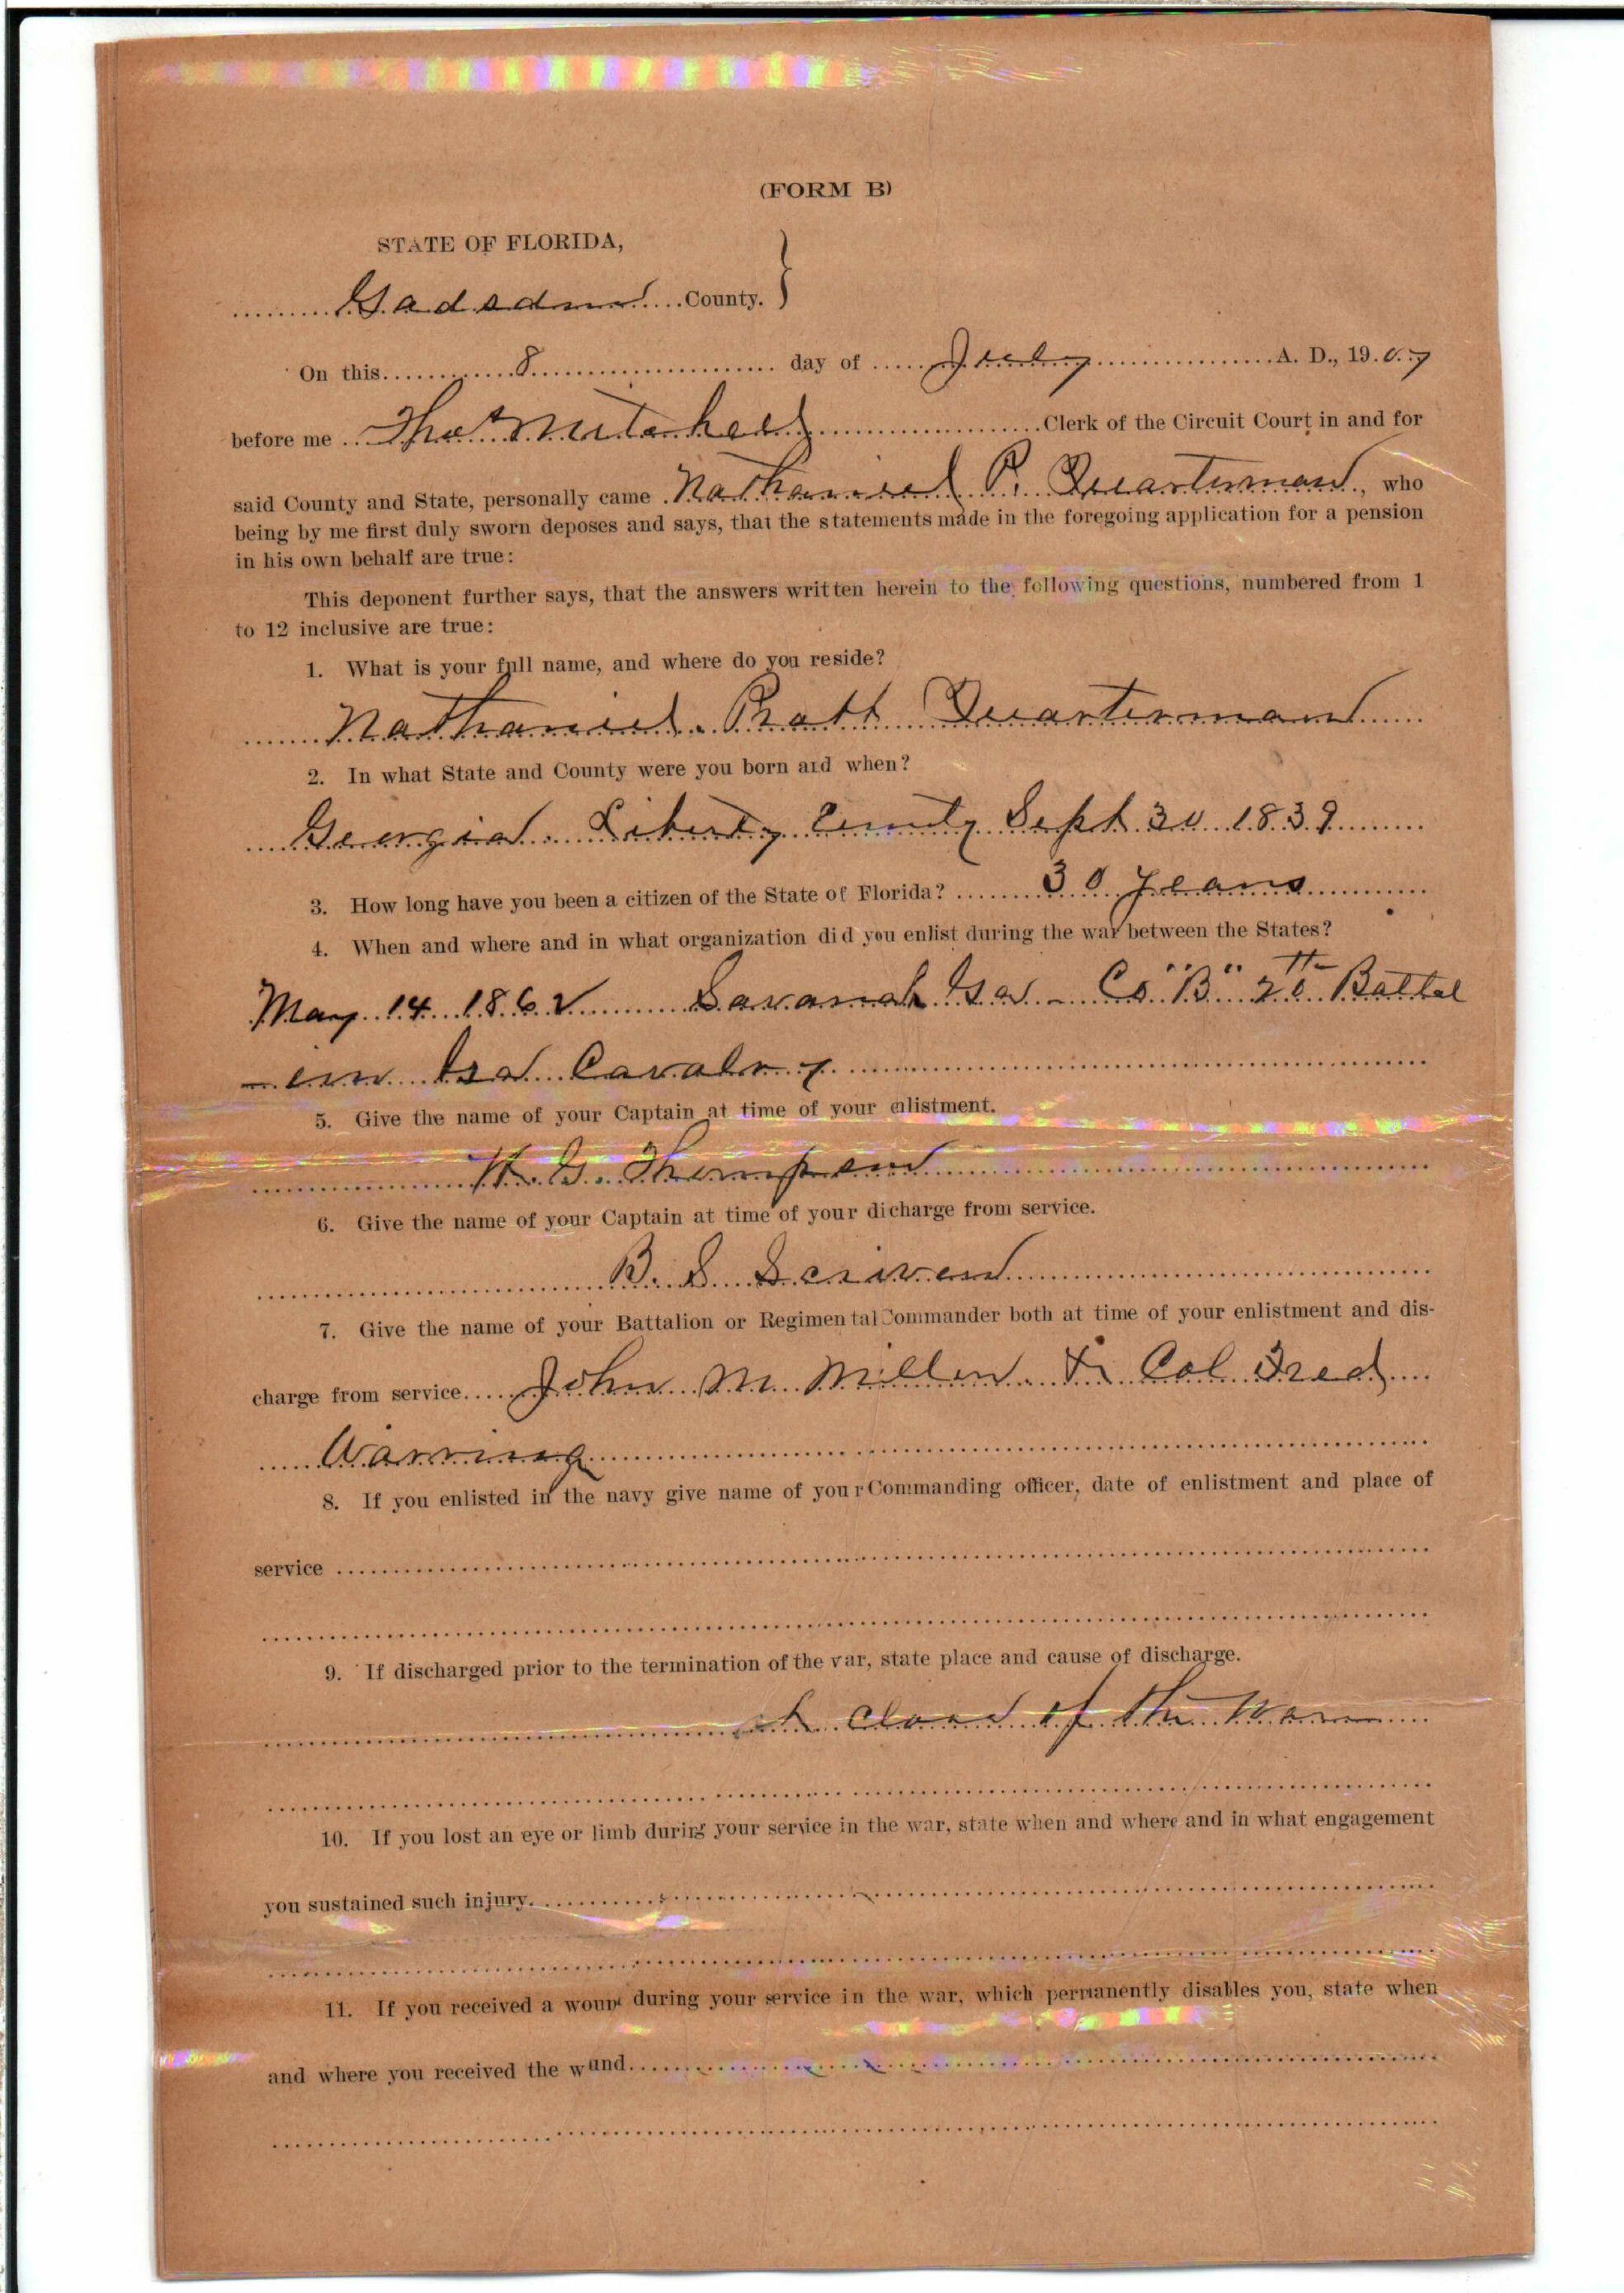 (FORM B)
STATE OF FLORIDA,
Gadsden County.
On this 8 day of July A. D., 1907
before me Thos Mitchell Clerk of the Circuit Court in and for
said County and State, personally came Nathaniel P. Quarterman, who
being by me first duly sworn deposes and says, that the statements made in the foregoing application for a pension
in his own behalf are true:
This deponent further says, that the answers written herein to the following questions, numbered from 1
to 12 inclusive are true:
1. What is your full name, and where do you reside?
Nathaniel Pratt Quarterman
2. In what State and County were you born and when?
Georgia Liberty County Sept 30 1839
3. How long have you been a citizen of the State of Florida? 30 years
4. When and where and in what organization did you enlist during the war between the States?
May 14 1862 Savanah Ga - Co "B" 20th Battal
-ion Ga Cavalry
5. Give the name of your Captain at time of your enlistment.
W. G. Thompson
6. Give the name of your Captain at time of your dicharge from service.
B. S. Scriven
7. Give the name of your Battalion or Regimental Commander both at time of your enlistment and dis-
charge from service John M Millen & Col Fred
Warring
8. If you enlisted in the navy give name of your Commanding officer, date of enlistment and place of
service
9. If discharged prior to the termination of the war, state place and cause of discharge.
at close of the War
10. If you lost an eye or limb during your service in the war, state when and where and in what engagement
you sustained such injury.
11. If you received a wound during your service in the war, which permanently disables you, state when
and where you received the wound.